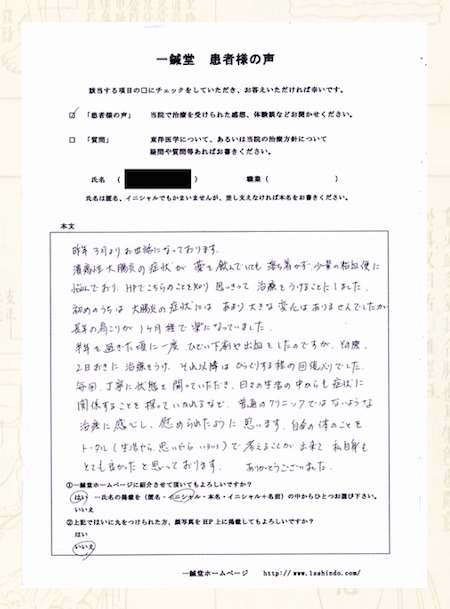 一鍼堂 患者様の声
該当する項目の□にチェックをしていただき、お答えいただければ幸いです。
☑ 「患者様の声」 当院で治療を受けられた感想、体験談などお聞かせください。
□ 「質問」 東洋医学について、あるいは当院の治療方針について
疑問や質問等あればお書きください。
氏名 ( ) 職業 ( )
氏名は匿名、イニシャルでもかまいませんが、差し支えなければ本名をお書きください。
本文
昨年3月よりお世話になっております。
潰瘍性大腸炎の症状が薬を飲んでいても落ち着かず、少量の粘血便に
悩んでおり、HPでこちらのことを知り思いきって治療をうけることにしました。
初めのうちは大腸炎の症状にはあまり大きな変化はありませんでしたが
長年の肩こりが1ヶ月程で楽になっていました。
半年を過ぎた頃に一度、ひどい下痢や出血をしたのですが、
2日おきに治療をうけ、それ以降はびっくりする程の回復ぶりでした。
毎回、丁寧に状態を聞いていただき、日々の生活の中からも症状に
関係することを探っていかれるなど、普通のクリニックではないような
治療に感心し、慰められたように思います。自分の体のことを
トータル(生活やら、思いやら いろいろ)で考えることが出来て 私自身も
とても良かったと思っております。 ありがとうございました。
①一鍼堂ホームページに紹介させて頂いてもよろしいですか?
はい …氏名の掲載を(匿名・イニシャル・本名・イニシャル+名前)の中からひとつお選び下さい。
いいえ
②上記ではいに丸をつけられた方、顔写真をHP上に掲載してもよろしいですか?
はい
いいえ
一鍼堂ホームページ http://www.1sshindo.com/